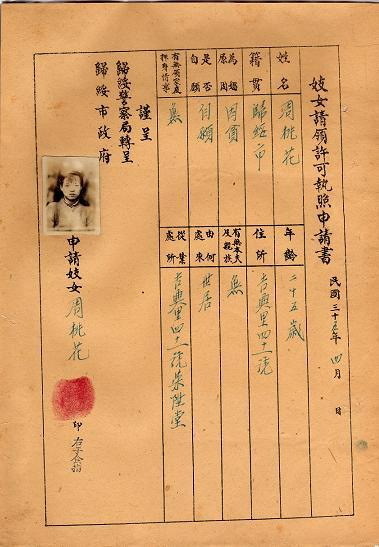 妓女請領許可執照申請書
民國三十五年四月 日
姓名 周桃花
年齡 二十五歲
籍貫 歸綏市
住所 吉興里四十一號
為娼原因 因貧
有無丈夫及親族 無
是否自願 自願
由何處來 世居
有無領家或 無
從業處所 吉興里四十一號榮陞堂
謹呈
歸綏警察局轉呈
歸綏市政府
申請妓女 周桃花
印 右手食指